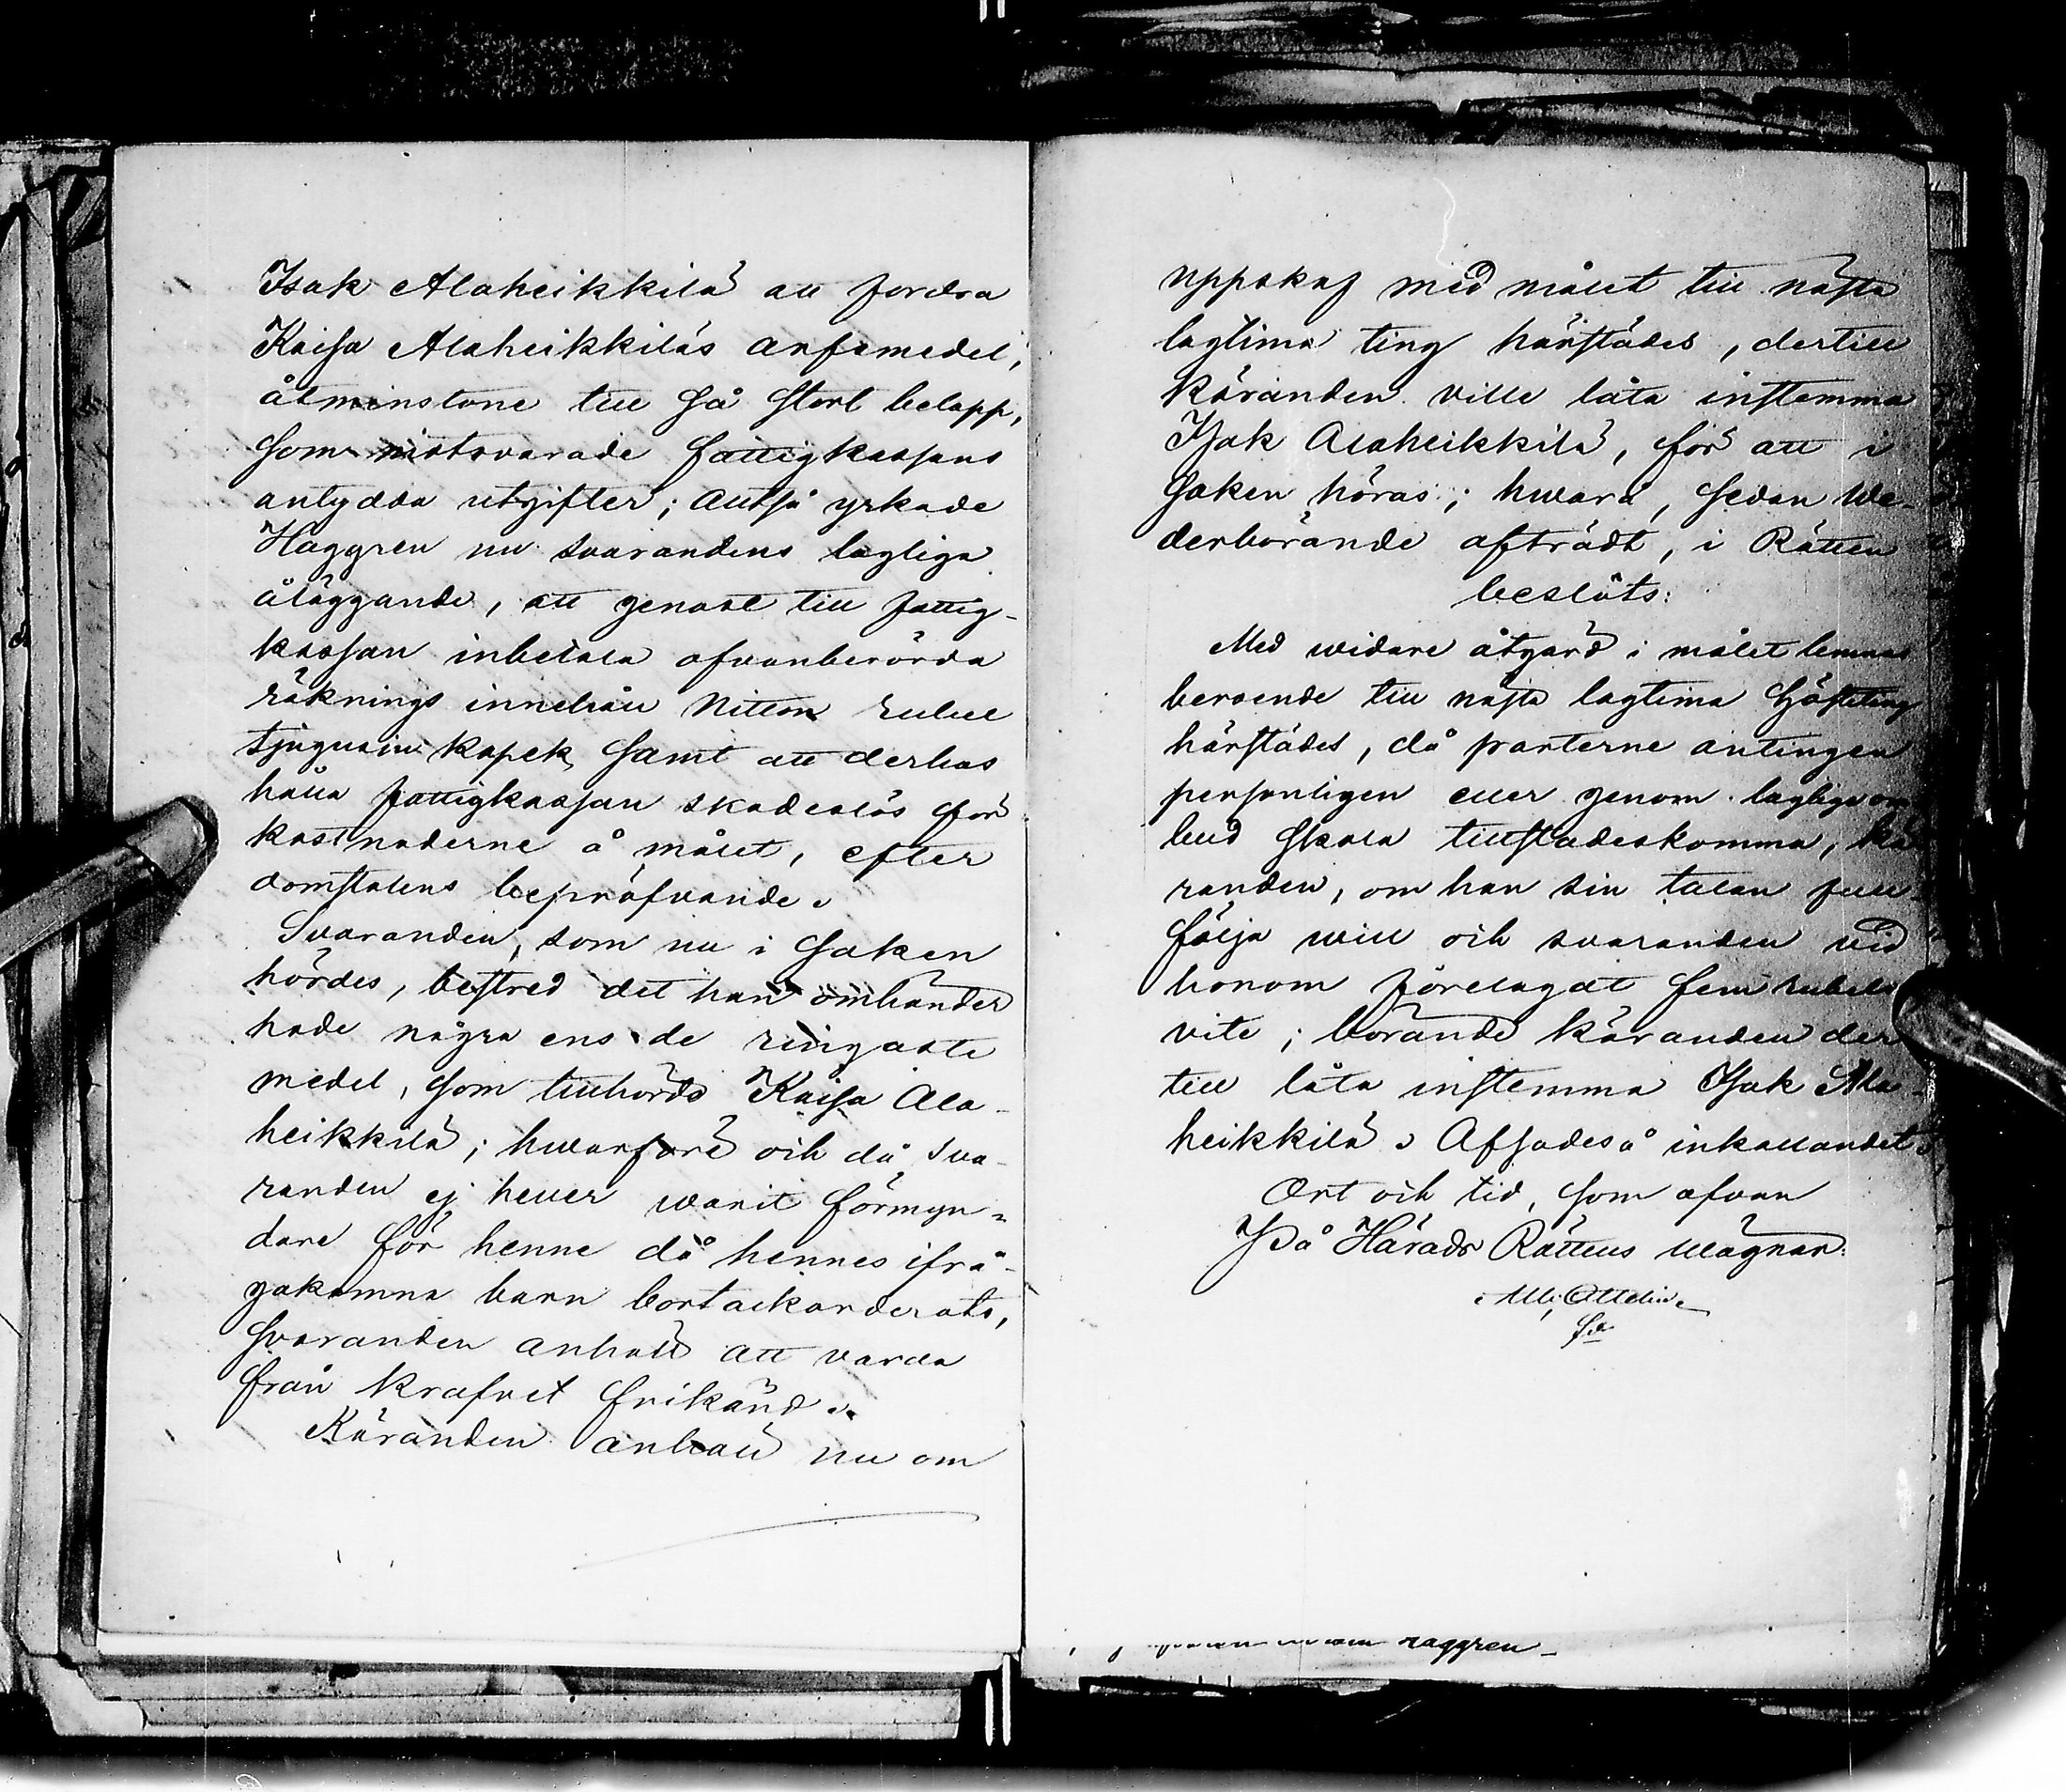 Isak Alaheikkilä att fordra
Kaisa Alaheikkiläs arfsmedel,
åtminstone till så stort belopp,
som motsvarade fattigkassans
antydda utgifter; alltså yrkade
Haggren nu svarandens lagliga
åläggande, att genast till fattig-
kassan inbetala ofvanberörda
räknings innehåll Nitton rubel
tjugusju kopek samt att derhos
hålla fattigkassan skadeslös för
kostnaderne å målet, efter
domstolens bepröfvande.
Svaranden, som nu i saken
hördes, bestred det han omhänder
hade några ens de ringaste
medel, som tillhörde Kaisa Ala-
heikkilä; hwarföre och då sva-
randen ej heller warit förmyn-
dare för henne då hennes ifrå-
gakomna barn bortackorderats,
svaranden anhöll att varda
från krafvet frikänd.
Käranden anhöll nu om
uppskof med målet till nästa
lagtima ting härstädes, dertill
käranden ville låta instemma
Isak Alaheikkilä, för att i
saken höras; hwarå, sedan We-
derbörande afträdt, i Rätten
beslöts:
Med widare åtgärd i målet lemnas
beroende till nästa lagtima hösteting
härstädes, då parterne antingen
personligen eller genom laglige om
bud skola tillstädeskomma, kä
randen, om han sin talan full-
följa will och svaranden vid
honom förelagdt fem rubels
vite; börande käranden der
till låta instemma Isak Ala-
heikkilä. Afsades å inkallandet.
Ort och tid, som ofvan
På Härads Rättens wägnar:
Ottelin
haggren